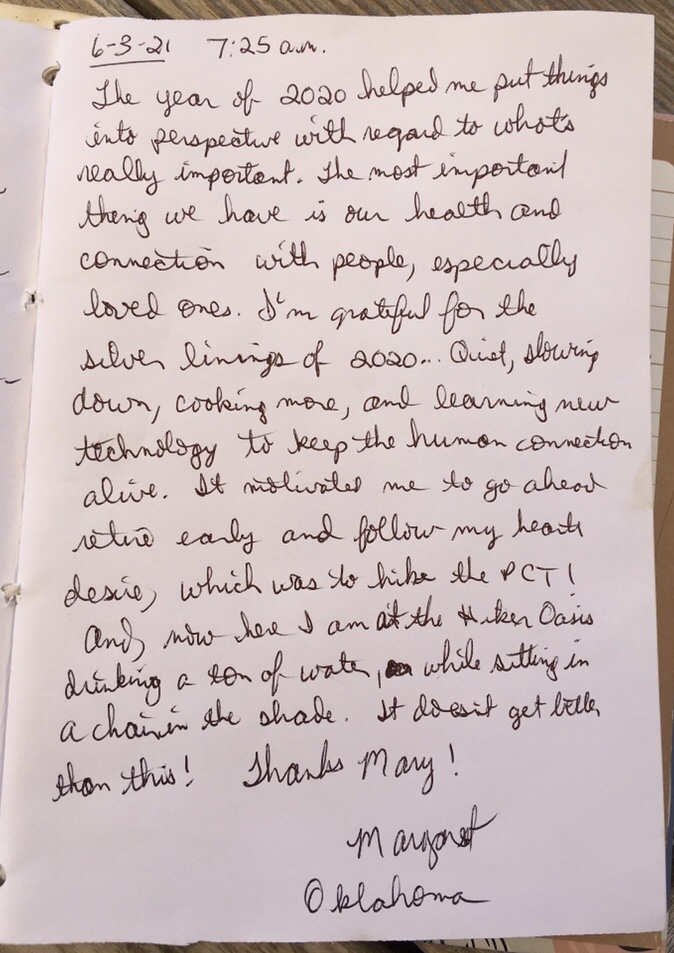 6-3-21 7:25 a.m.
The year of 2020 helped me put things
into perspective with regard to what's
really important. The most important
thing we have is our health and
connection with people, especially
loved ones. I'm grateful for the
silver linings of 2020... Quiet, slowing
down, cooking more, and learning new
technology to keep the human connection
alive. It motivated me to go ahead
retire early and follow my hearts
desire, which was to hike the PCT!
And, now here I am at the Hiker Oasis
drinking a ton of water, while sitting in
a chair in the shade. It doesn't get better
than this! Thanks Mary!
Margaret
Oklahoma